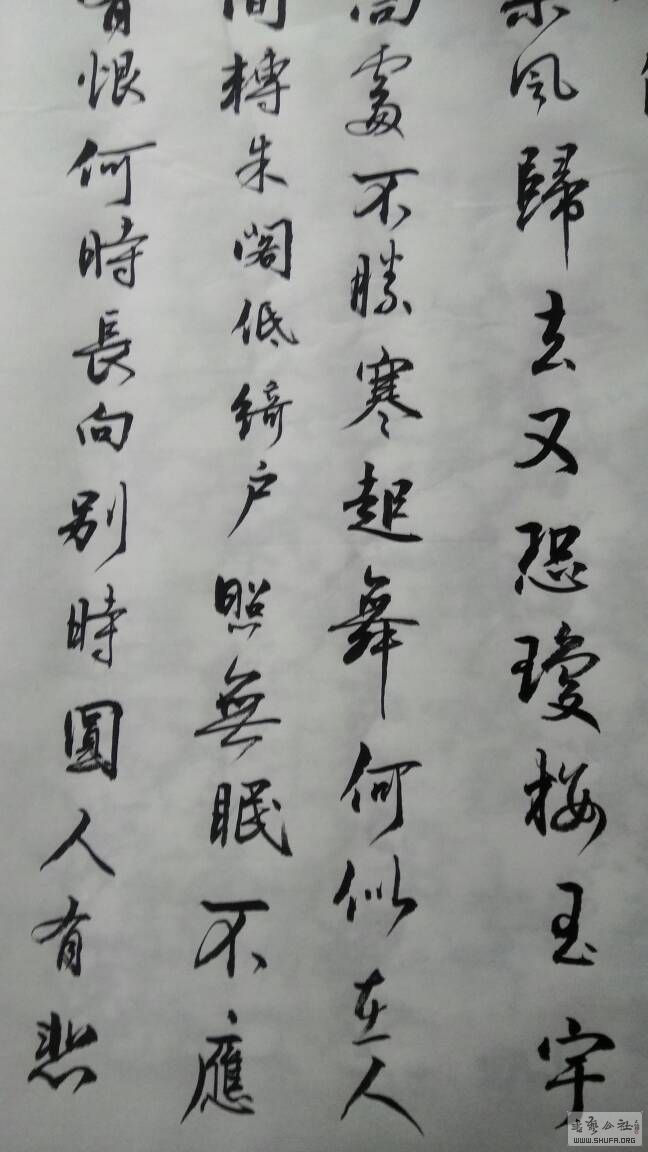 乘風歸去又恐瓊樓玉宇
高處不勝寒起舞何似在人
間轉朱閣低綺户照無眠不應
有恨何時長向别時圓人有悲
書藝公社
WWW.SHUFA.ORG